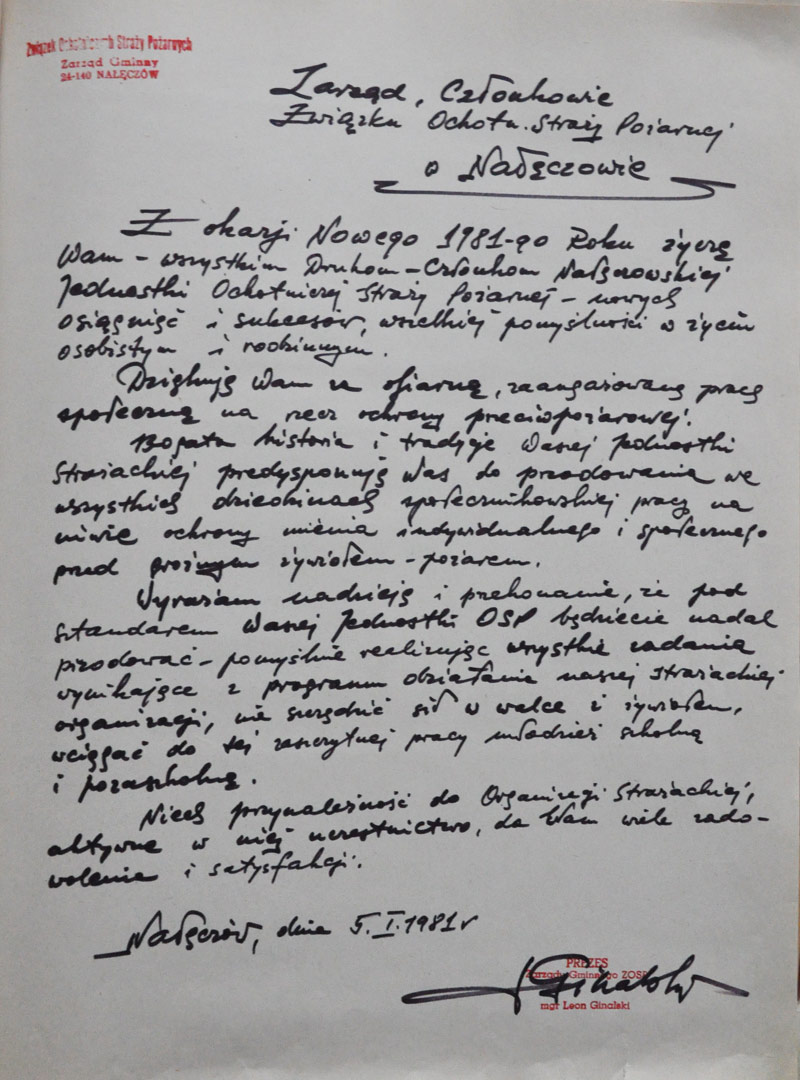 Związek Ochotniczych Straży Pożarnych
Zarząd Gminny
24-140 NAŁĘCZÓW
Zarząd, Członkowie
Związku Ochotn. Straży Pożarnej
o Nałęczowie
Z okazji Nowego 1981-go Roku życzę
Wam - wszystkim Druhom - Członkom Nałęczowskiej
Jednostki Ochotniczej Straży Pożarnej - nowych
osiągnięć i sukcesów, wszelkiej pomyślności w życiu
osobistym i rodzinnym.
Dziękuję Wam za ofiarną, zaangażowaną pracę
społeczną na rzecz ochrony przeciwpożarowej.
Bogata historia i tradycje Waszej Jednostki
Strażackiej predysponują Was do przodowania we
wszystkich dziedzinach społecznikowskiej pracy na
niwie ochrony mienia indywidualnego i społecznego
przed groźnym żywiołem - pożarem.
Wyrażam nadzieję i przekonanie, że pod
sztandarem Waszej Jednostki OSP będziecie nadal
przodować - pomyślnie realizując wszystkie zadania
wynikające z programu działania naszej strażackiej
organizacji, nie szczędzić sił w walce z żywiołem,
wciągać do tej zaszczytnej pracy młodzież szkolną
i pozaszkolną.
Niech przynależność do Organizacji Strażackiej,
aktywne w niej uczestnictwo, da Wam wiele zado-
wolenia i satysfakcji.
Nałęczów, dnia 5.I.1981 r
PREZES
Zarządu Gminnego ZOSP
Ginalski
mgr Leon Ginalski